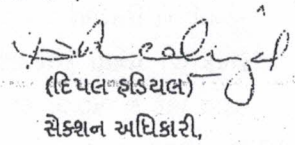 (દિપલ હડિયલ)
સૈક્શન અધિકારી,